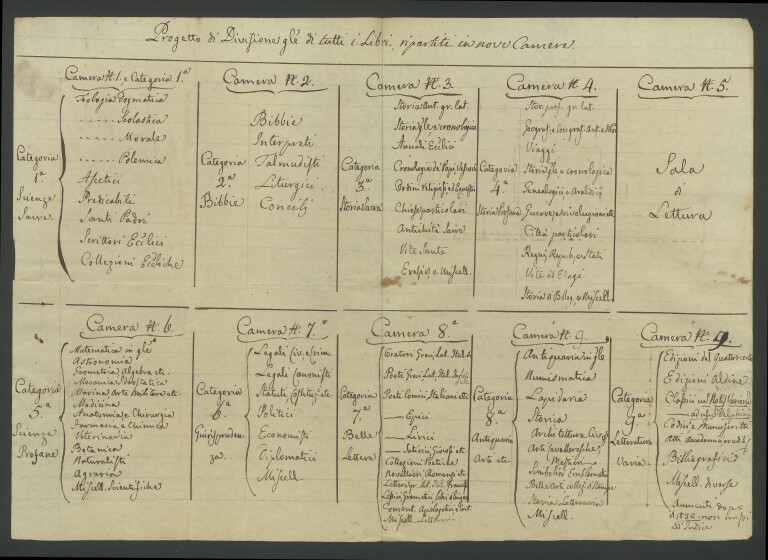 Progetto di Divisione gle di tutti i Libri, ripartiti in nove Camere.
Camera N. 1. e Categoria 1.a
Categoria
1.a
Scienze
Sacre
Teologia Dogmatica
------ Scolastica
------ Morale
------ Polemica
Ascetici
Predicabile
Santi Padri
Scrittori Ecclici
Collezioni Ecliche
Camera N. 2.
Categoria
2.a
Bibbie
Bibbie
Interpreti
Talmudisti
Liturgici
Concilj
Camera N. 3.
Categoria
3.a
Storia Sacra
Storia Ant. gr. lat.
Storia gle, e cronologica
Annali Ecclici
Cronologia de' Papi
Ordini Religiosi, e
Chiese particolari
Antichità Sacre
Vite Sante
Eresie, e Miscell.
Camera N. 4.
Categoria
4.a
Storia Profana
Stor. prof. gr. lat.
Geograf. e Corograf. Ant. e Mod
Viaggi
Storia gle e cronologica
Genealogia e Araldica
Guerre, e rivoluzioni etc
Città particolari
Regni, Repub. e Stati
Vite ed Elogi
Storia di Relig. e Miscell.
Camera N. 5.
Sala
di
Lettura
Camera N. 6.
Categoria
5.a
Scienze
Profane
Matematica in gle
Astronomia
Geometria, Algebra etc.
Mecanica, Idrostatica
Marina, Arte Militare etc.
Medicina
Anatomia, e Chirurgia
Farmacia, e Chimica
Veterinaria
Botanica
Naturalisti
Agraria
Miscell. Scientifiche
Camera N. 7.a
Categoria
6.a
Giurisprudenza.
Legali Civ. e Crim
Legali Canonisti
Statuti, Costituz. etc.
Politici
Economisti
Diplomatici
Miscell.
Camera 8.a
Categoria
7.a
Belle
Lettere
Oratori Greci, Lat. Ital.
Poeti Greci, Lat. Ital.
Poeti Comici Italiani etc
---- Epici
---- Lirici
---- Satirici Giocosi etc
Collezioni Poetiche
Novellieri, Romanzi etc
Letters. gr. lat. Ital.
Lessici Gramatici
Coment. Apologetici
Miscell. Letterarie
Camera N. 9.
Categoria
8.a
Antiquaria
Arte etc.
Antiquaria in gle
Numismatica
Lapidaria
Storica
Architettura Civ.
Arti
Mestieri
Simbolici Emblematici
Belle Arti collez. di Stampe
Storia Letteraria
Miscell.
Camera N. 9.
Categoria
9.a
Letteratura
Varia
Edizioni del Quattrocento
Edizioni Aldine
Classici cu. Notis Variorum
---- ad usum Delphini
Codici, e Manuscritti
Atti Accademici
Bibliografia
Miscell. diverse
Aumenti dopo
il 1832. non messi
all'Indice